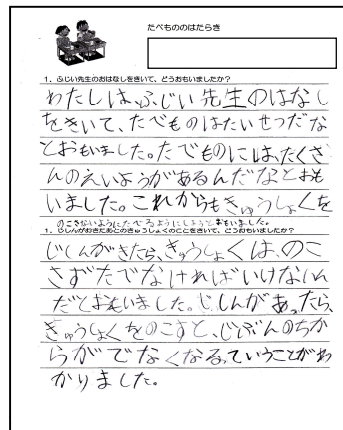 たべもののはたらき
1．ふじい先生のおはなしをきいて、どうおもいましたか？
わたしは、ふじい先生のはなし
をきいて、たべものはたいせつだな
とおもいました。たべものには、たくさ
んのえいようがあるんだなとおも
いました。これからもきゅうしょくを
のこさないようにたべるようにしようとおもいました。
1．じしんがおきたあとのきゅうしょくのことをきいて、どうおもいましたか？
じしんがきたら、きゅうしょくは、のこ
さずたべなければいけないん
だとおもいました。じしんがあったら、
きゅうしょくをのこすと、じぶんのちか
らがでなくなるっていうことがわ
かりました。